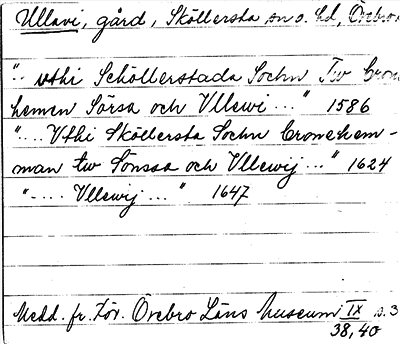 Ullavi, gård, Sköllersta sn o. hd, Örebro
".. vthi Schöllerstada Sochn Tw Cron
hemen Sörsa och Vllewi ..." 1586
".... Vthi Sköllersta Sochn Cronehem-
man tw Sonssa och Vllewij ..." 1624
"-.... Vllewij ..." 1647
Medd. fr. För. Örebro Läns Museum IX s. 3
38, 40